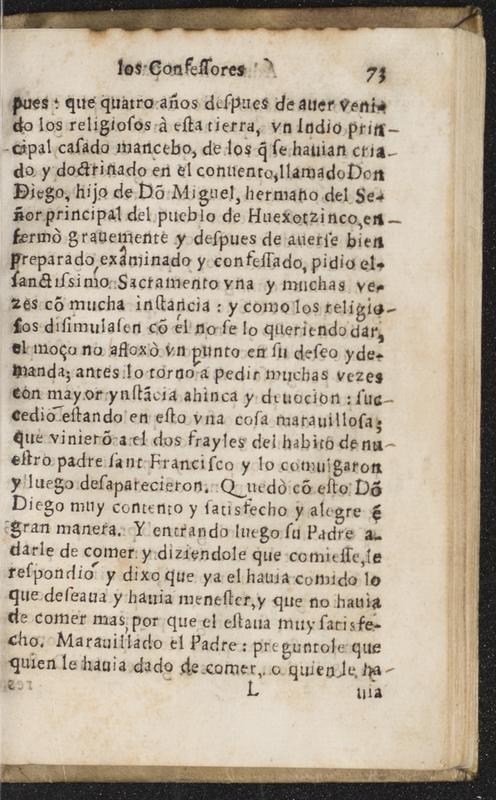 los Confeſſores 73
pues: que quatro años deſpues de auer veni-
do los religioſos à eſta tierra, vn Indio prin-
cipal caſado mancebo, de los q̃ ſe hauian cria-
do y doctrinado en el conuento, llamado Don
Diego, hijo de Dõ Miguel, hermano del Se-
ñor principal del pueblo de Huexotzinco, en-
fermò grauemente y deſpues de auerſe bien
preparado examinado y confeſſado, pidio el
ſanctiſsimo Sacramento vna y muchas ve-
zes cõ mucha inſtancia: y como los religio-
ſos diſimulaſen cõ el no ſe lo queriendo dar,
el moço no afloxò vn punto en ſu deſeo y de-
manda; antes lo torno a pedir muchas vezes
con mayor ynſtãcia ahinca y deuocion: ſuc-
cedio eſtando en eſto vna coſa marauilloſa;
que vinierõ a el dos frayles del habito de nu-
eſtro padre ſant Franciſco y lo comulgaron
y luego deſaparecieron. Quedò cõ eſto Dõ
Diego muy contento y ſatisfecho y alegre ẽ
gran manera. Y entrando luego ſu Padre a
darle de comer y diziendole que comieſſe, le
reſpondio y dixo que ya el hauia comido lo
que deſeaua y hauia meneſter, y que no hauia
de comer mas, por que el eſtaua muy ſatisfe-
cho. Marauillado el Padre: preguntole que
quien le hauia dado de comer, o quien le ha-
L uia